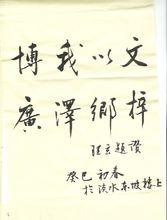 博我以文
廣澤鄉梓
玄題
癸巳 初春
於淡水東坡樓上